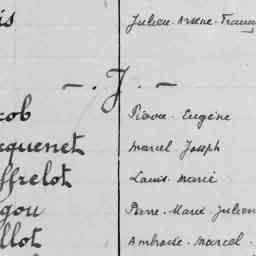 is Julien-Arsène-Franç
-. J. -
cob Pierre-Eugène
cquenet Marcel-Joseph
ffrelot Louis-Marie
gou Pierre-Marie-Julien
llot Ambroise-Marcel.